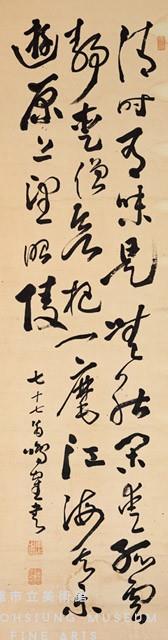 清時有味是無能閑愛孤雲
靜愛僧欲把一麾江海去樂
遊原上望昭陵
七十七翁鳴鶴書
雄市立美術館
OHSIUNG MUSEUM
FINE ARTS